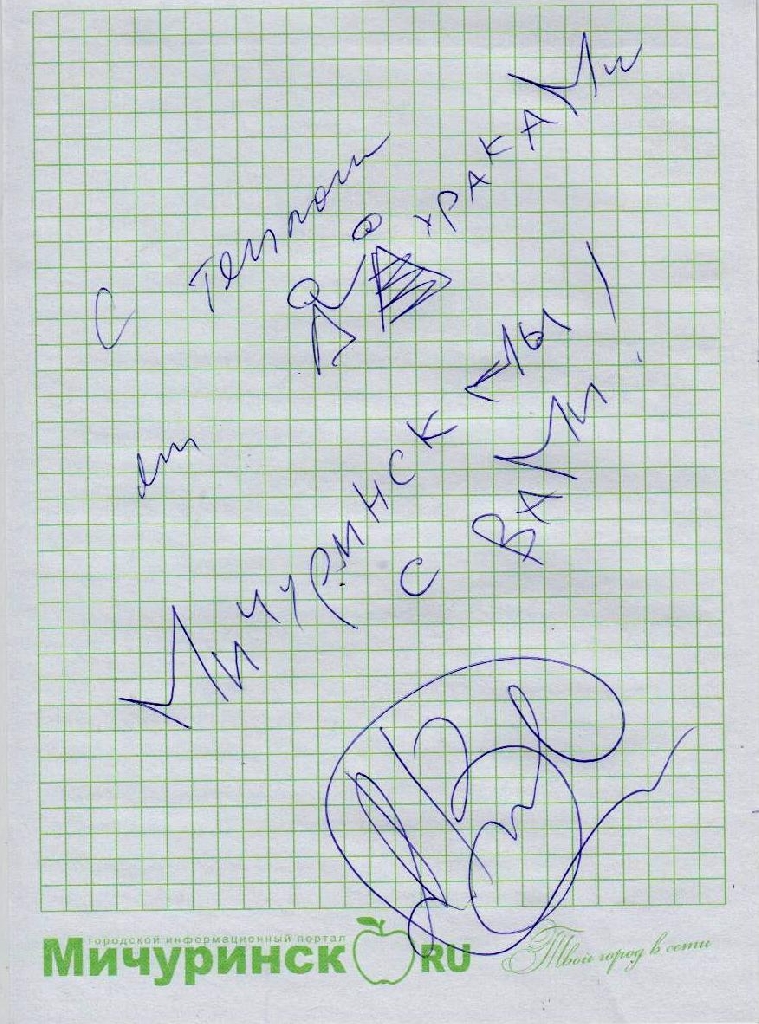 С теплом
от Дураками
Мичуринск
мы с вами!
городской информационный портал
Мичуринск RU
Твой город в сети